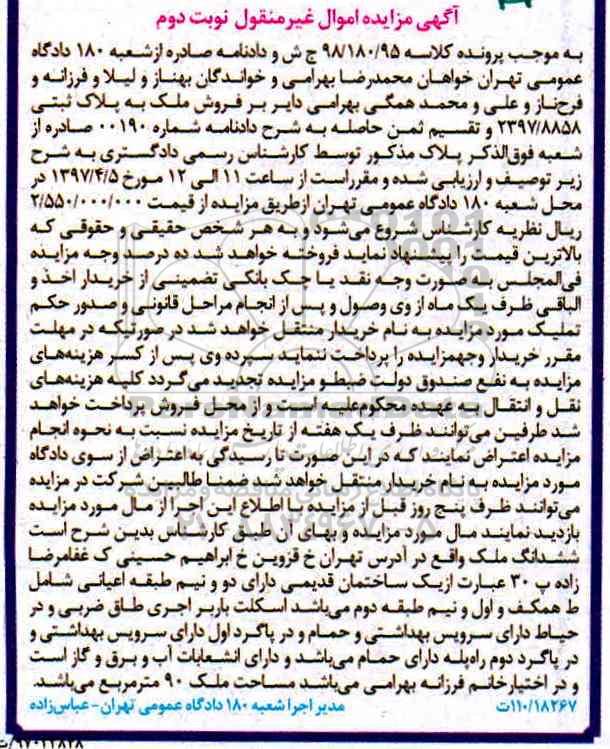 آگهی مزایده اموال غیرمنقول نوبت دوم
به موجب پرونده کلاسه ۹۸/۱۸۰/۹۵ ج ش و دادنامه صادره ازشعبه ۱۸۰ دادگاه
عمومی تهران خواهان محمدرضا بهرامی و خواندگان بهناز و لیلا و فرزانه و
فرح‌ناز و علی و محمد همگی بهرامی دایر بر فروش ملک به پلاک ثبتی
۲۳۹۷/۸۸۵۸ و تقسیم ثمن حاصله به شرح دادنامه شماره ۰۰۱۹۰ صادره از
شعبه فوق‌الذکر پلاک مذکور توسط کارشناس رسمی دادگستری به شرح
زیر توصیف و ارزیابی شده و مقرراست از ساعت ۱۱ الی ۱۲ مورخ ۱۳۹۷/۴/۵ در
محل شعبه ۱۸۰ دادگاه عمومی تهران ازطریق مزایده از قیمت ۲/۵۵۰/۰۰۰/۰۰۰
ریال نظریه کارشناس شروع می‌شود و به هر شخص حقیقی و حقوقی که
بالاترین قیمت را پیشنهاد نماید فروخته خواهد شد ده درصد وجه مزایده
فی‌المجلس به صورت وجه نقد یا چک بانکی تضمینی از خریدار اخذ و
الباقی ظرف یک ماه از وی وصول و پس از انجام مراحل قانونی و صدور حکم
تملیک مورد مزایده به نام خریدار منتقل خواهد شد در صورتیکه در مهلت
مقرر خریدار وجهمزایده را پرداخت ننماید سپرده وی پس از کسر هزینه‌های
مزایده به نفع صندوق دولت ضبطو مزایده تجدید می‌گردد کلیه هزینه‌های
نقل و انتقال به عهده محکوم‌علیه است و از محل فروش پرداخت خواهد
شد طرفین می‌توانند ظرف یک هفته از تاریخ مزایده نسبت به نحوه انجام
مزایده اعتراض نمایند که در این صورت تا رسیدگی به اعتراض از سوی دادگاه
مورد مزایده به نام خریدار منتقل خواهد شد ضمنا طالبین شرکت در مزایده
می‌توانند ظرف پنج روز قبل از مزایده با اطلاع این اجرا از مال مورد مزایده
بازدید نمایند مال مورد مزایده و بهای آن طبق کارشناس بدین شرح است
ششدانگ ملک واقع در آدرس تهران خ قزوین خ ابراهیم حسینی ک غفامرضا
زاده پ ۳۰ عبارت ازیک ساختمان قدیمی دارای دو و نیم طبقه اعیانی شامل
ط همکف و اول و نیم طبقه دوم می‌باشد اسکلت باربر اجری طاق ضربی و در
حیاط دارای سرویس بهداشتی و حمام و در پاگرد اول دارای سرویس بهداشتی و
در پاگرد دوم راه‌پله دارای حمام می‌باشد و دارای انشعابات آب و برق و گاز است
و در اختیارخانم فرزانه بهرامی می‌باشد مساحت ملک ۹۰ مترمربع می‌باشد.
مدیر اجرا شعبه ۱۸۰ دادگاه عمومی تهران- عباس‌زاده
۱۱۰/۱۸۲۶۷ت